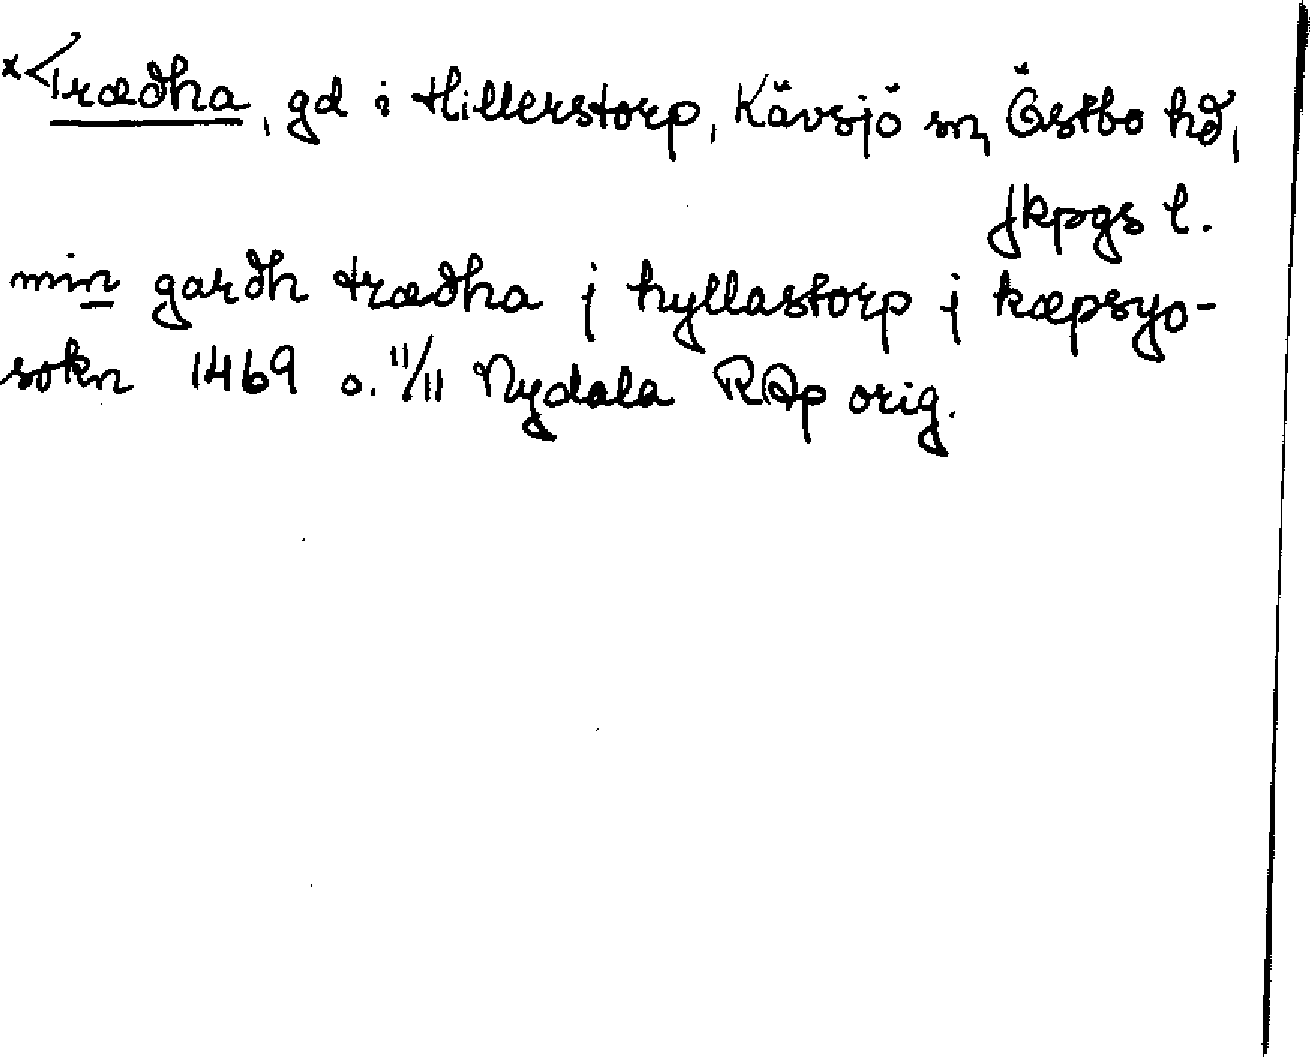 *<Trædha, gd i Hillerstorp, Kävsjö sn, Östbo hd,
Jkpgs l.
min gardh trædha j hyllastorp j kæpsyo-
sokn 1469 o. 11/11 Nydala RAp orig.